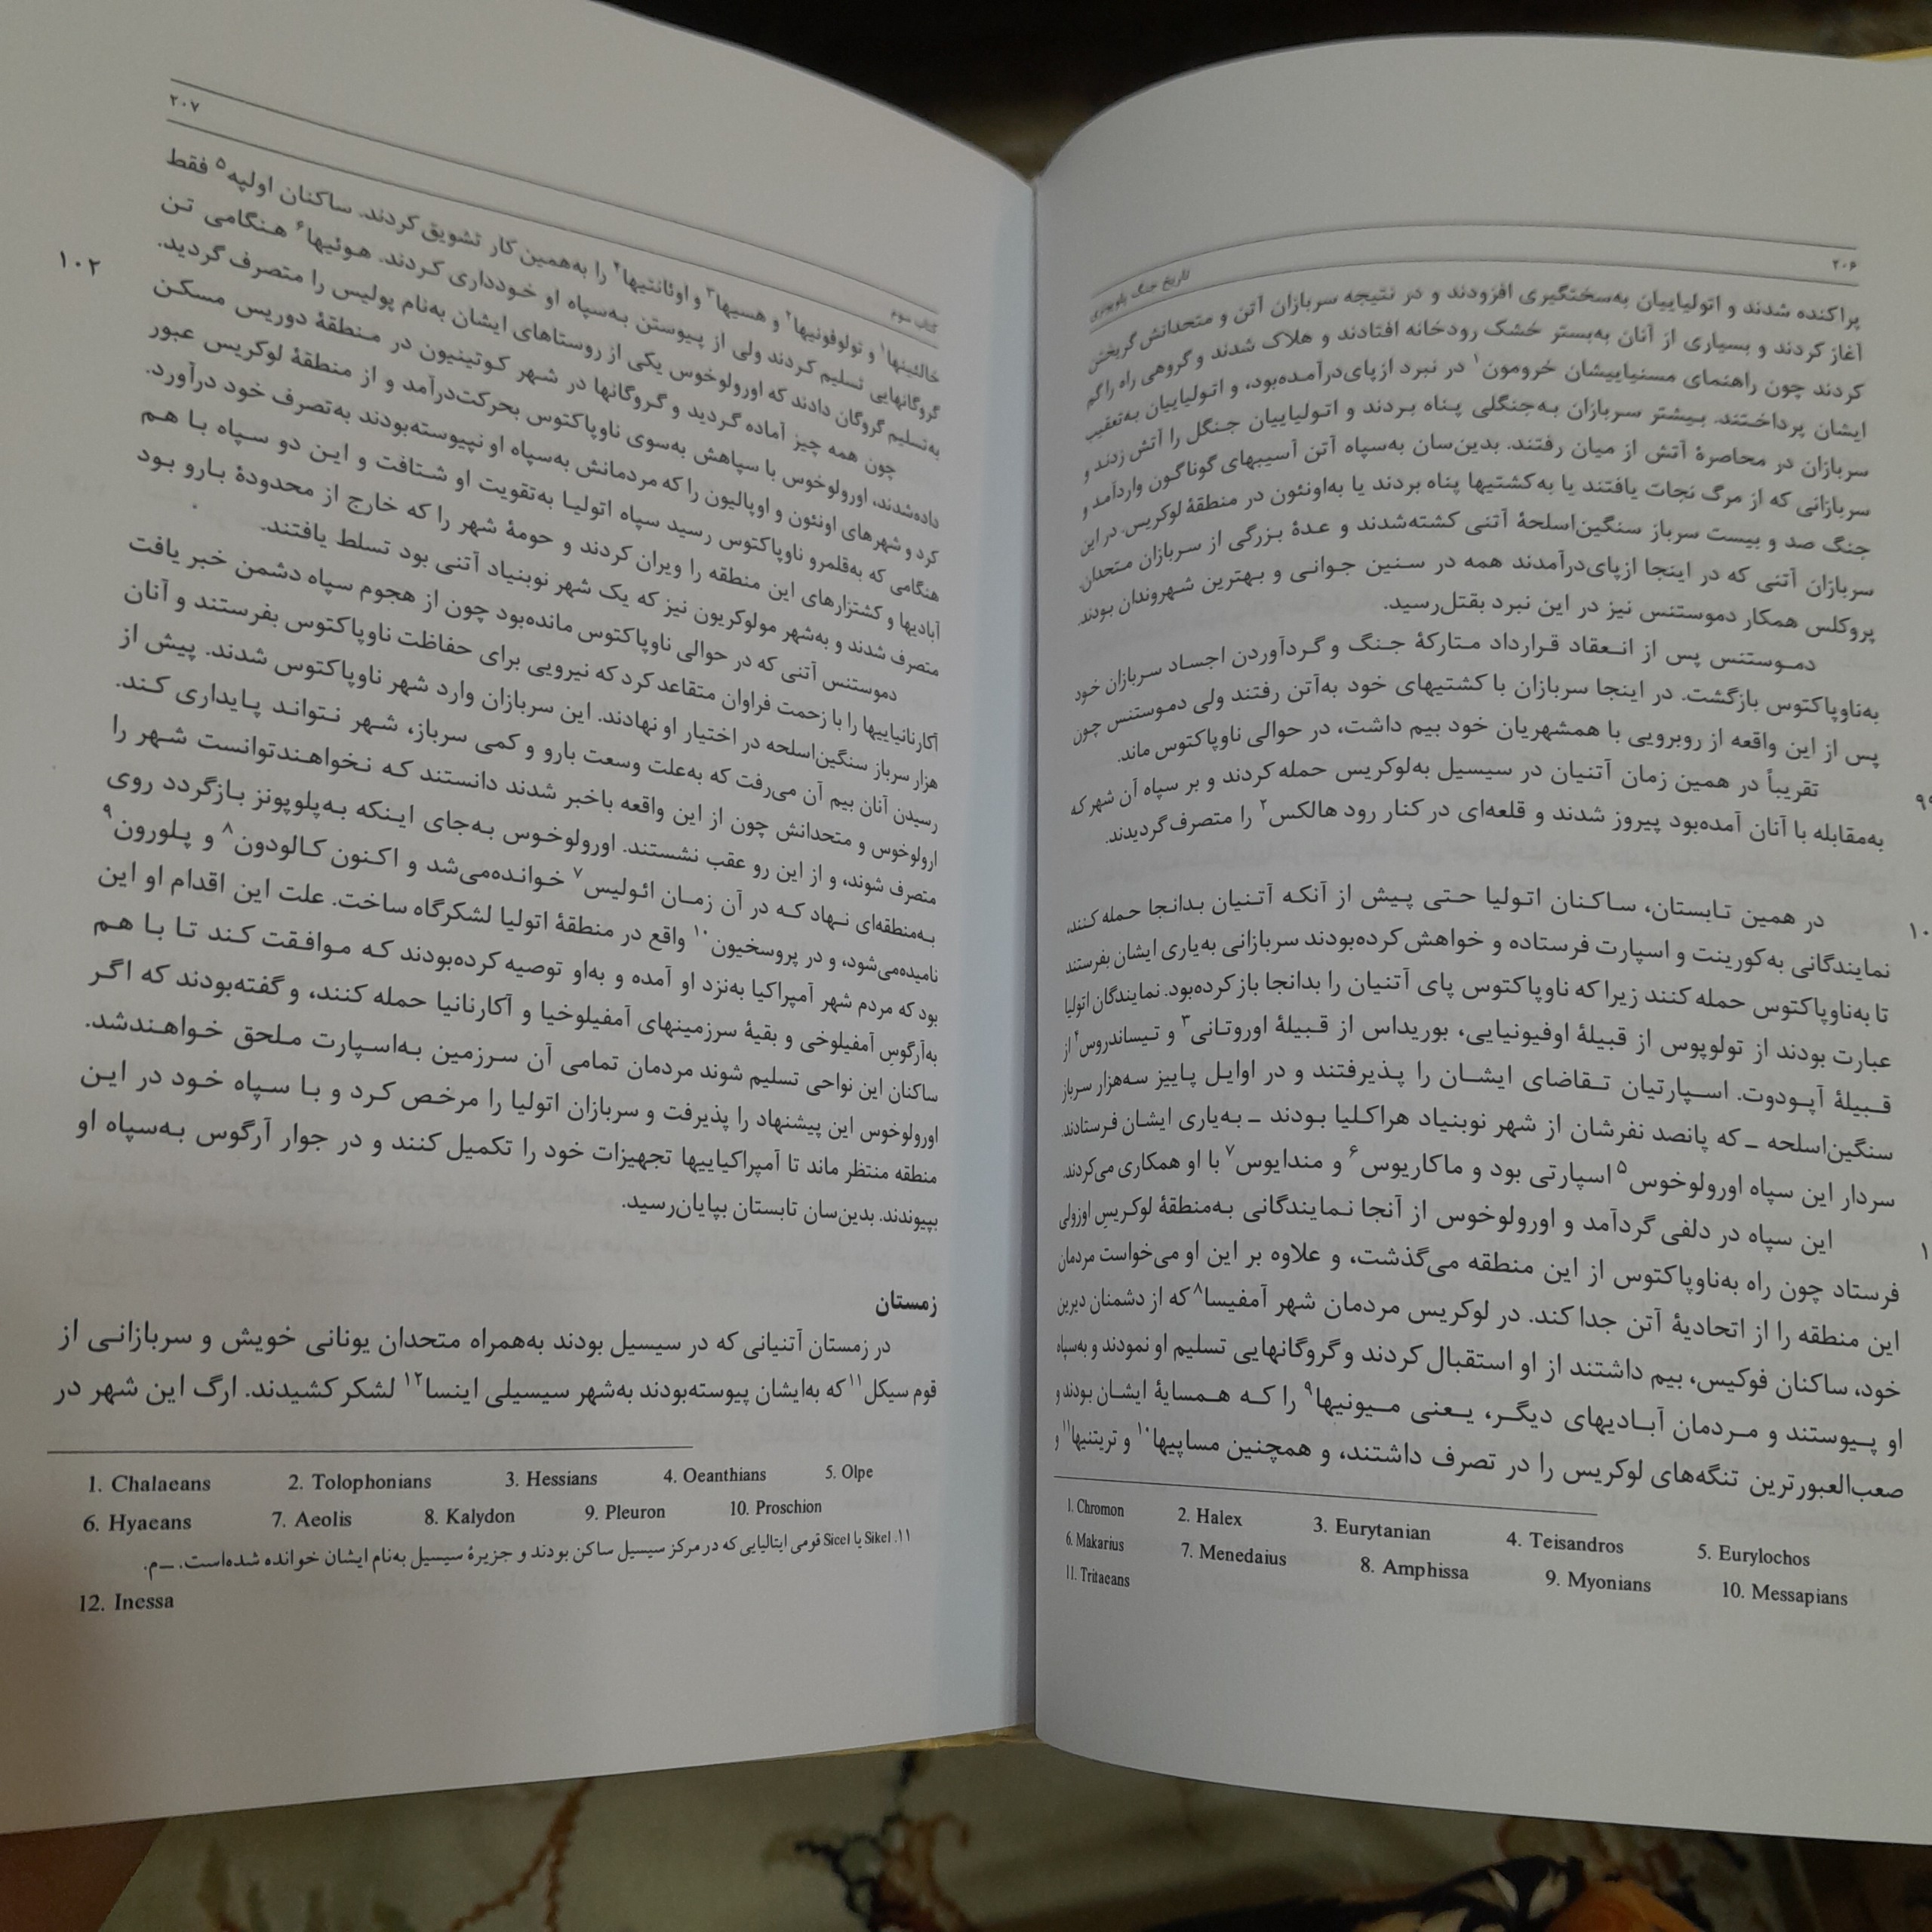 ۲۰۶
تاریخ جنگ پلوپونزی
پراکنده شدند و اتولیاییان به‌سختگیری افزودند و در نتیجه سربازان آتن و متحدانش گریختن
آغاز کردند و بسیاری از آنان به‌بستر خشک رودخانه افتادند و هلاک شدند و گروهی راه را گم
کردند چون راهنمای مسنیاییشان خرومون۱ در نبرد ازپای‌درآمده‌بود، و اتولیاییان به‌تعقیب
ایشان پرداختند. بیشتر سربازان به‌جنگلی پناه بردند و اتولیاییان جنگل را آتش زدند و
سربازان در محاصرهٔ آتش از میان رفتند. بدین‌سان به‌سپاه آتن آسیبهای گوناگون واردآمد و
سربازانی که از مرگ نجات یافتند یا به‌کشتیها پناه بردند یا به‌اونئون در منطقهٔ لوکریس. در این
جنگ صد و بیست سرباز سنگین‌اسلحهٔ آتنی کشته‌شدند و عدهٔ بزرگی از سربازان متحدان.
سربازان آتنی که در اینجا ازپای‌درآمدند همه در سنین جوانی و بهترین شهروندان بودند.
پروکلس همکار دموستنس نیز در این نبرد بقتل‌رسید.
دموستنس پس از انعقاد قرارداد متارکهٔ جنگ و گردآوردن اجساد سربازان خود
به‌ناوپاکتوس بازگشت. در اینجا سربازان با کشتیهای خود به‌آتن رفتند ولی دموستنس چون
پس از این واقعه از روبرویی با همشهریان خود بیم داشت، در حوالی ناوپاکتوس ماند.
تقریباً در همین زمان آتنیان در سیسیل به‌لوکریس حمله کردند و بر سپاه آن شهر که
به‌مقابله با آنان آمده‌بود پیروز شدند و قلعه‌ای در کنار رود هالکس۲ را متصرف گردیدند.
در همین تابستان، ساکنان اتولیا حتی پیش از آنکه آتنیان بدانجا حمله کنند،
نمایندگانی به‌کورینت و اسپارت فرستاده و خواهش کرده‌بودند سربازانی به‌یاری ایشان بفرستند
تا به‌ناوپاکتوس حمله کنند زیرا که ناوپاکتوس پای آتنیان را بدانجا باز کرده‌بود. نمایندگان اتولیا
عبارت بودند از تولوپوس از قبیلهٔ اوفیونیایی، بوریداس از قبیلهٔ اوروتانی۳ و تیساندروس۴ از
قبیلهٔ آپودوت. اسپارتیان تقاضای ایشان را پذیرفتند و در اوایل پاییز سه‌هزار سرباز
سنگین‌اسلحه ـ که پانصد نفرشان از شهر نوبنیاد هراکلیا بودند ـ به‌یاری ایشان فرستادند.
سردار این سپاه اورولوخوس۵ اسپارتی بود و ماکاریوس۶ و مندایوس۷ با او همکاری می‌کردند.
این سپاه در دلفی گردآمد و اورولوخوس از آنجا نمایندگانی به‌منطقهٔ لوکریس اوزولی
فرستاد چون راه به‌ناوپاکتوس از این منطقه می‌گذشت، و علاوه بر این او می‌خواست مردمان
این منطقه را از اتحادیهٔ آتن جدا کند. در لوکریس مردمان شهر آمفیسا۸ که از دشمنان دیرین
خود، ساکنان فوکیس، بیم داشتند از او استقبال کردند و گروگانهایی تسلیم او نمودند و به‌سپاه
او پیوستند و مردمان آبادیهای دیگر، یعنی میونیها۹ را که همسایهٔ ایشان بودند و
صعب‌العبورترین تنگه‌های لوکریس را در تصرف داشتند، و همچنین مساپیها۱۰ و تریتنیها۱۱ و
1. Chromon 2. Halex 3. Eurytanian 4. Teisandros 5. Eurylochos
6. Makarius 7. Menedaius 8. Amphissa 9. Myonians 10. Messapians
11. Tritaeans
کتاب سوم
۲۰۷
خالئینها۱ و تولوفونیها۲ و هسیها۳ و اوئانتیها۴ را به‌همین کار تشویق کردند. ساکنان اولپه۵ فقط
گروگانهایی تسلیم کردند ولی از پیوستن به‌سپاه او خودداری کردند. هوئیها۶ هنگامی تن
به‌تسلیم گروگان دادند که اورولوخوس یکی از روستاهای ایشان به‌نام پولیس را متصرف گردید.
۱۰۲
چون همه چیز آماده گردید و گروگانها در شهر کوتینیون در منطقهٔ دوریس مسکن
داده‌شدند، اورولوخوس با سپاهش به‌سوی ناوپاکتوس بحرکت‌درآمد و از منطقهٔ لوکریس عبور
کرد و شهرهای اونئون و اوپالیون را که مردمانش به‌سپاه او نپیوسته‌بودند به‌تصرف خود درآورد.
هنگامی که به‌قلمرو ناوپاکتوس رسید سپاه اتولیا به‌تقویت او شتافت و این دو سپاه با هم
آبادیها و کشتزارهای این منطقه را ویران کردند و حومهٔ شهر را که خارج از محدودهٔ بارو بود
متصرف شدند و به‌شهر مولوکریون نیز که یک شهر نوبنیاد آتنی بود تسلط یافتند.
دموستنس آتنی که در حوالی ناوپاکتوس مانده‌بود چون از هجوم سپاه دشمن خبر یافت
آکارنانیاییها را با زحمت فراوان متقاعد کرد که نیرویی برای حفاظت ناوپاکتوس بفرستند و آنان
هزار سرباز سنگین‌اسلحه در اختیار او نهادند. این سربازان وارد شهر ناوپاکتوس شدند. پیش از
رسیدن آنان بیم آن می‌رفت که به‌علت وسعت بارو و کمی سرباز، شهر نتواند پایداری کند.
ارولوخوس و متحدانش چون از این واقعه باخبر شدند دانستند که نخواهندتوانست شهر را
متصرف شوند، و از این رو عقب نشستند. اورولوخوس به‌جای اینکه به‌پلوپونز بازگردد روی
به‌منطقه‌ای نهاد که در آن زمان ائولیس۷ خوانده‌می‌شد و اکنون کالودون۸ و پلورون۹
نامیده‌می‌شود، و در پروسخیون۱۰ واقع در منطقهٔ اتولیا لشکرگاه ساخت. علت این اقدام او این
بود که مردم شهر آمپراکیا به‌نزد او آمده و به‌او توصیه کرده‌بودند که موافقت کند تا با هم
به‌آرگوس آمفیلوخی و بقیهٔ سرزمینهای آمفیلوخیا و آکارنانیا حمله کنند، و گفته‌بودند که اگر
ساکنان این نواحی تسلیم شوند مردمان تمامی آن سرزمین به‌اسپارت ملحق خواهندشد.
اورولوخوس این پیشنهاد را پذیرفت و سربازان اتولیا را مرخص کرد و با سپاه خود در این
منطقه منتظر ماند تا آمپراکیاییها تجهیزات خود را تکمیل کنند و در جوار آرگوس به‌سپاه او
بپیوندند. بدین‌سان تابستان بپایان‌رسید.
زمستان
در زمستان آتنیانی که در سیسیل بودند به‌همراه متحدان یونانی خویش و سربازانی از
قوم سیکل۱۱ که به‌ایشان پیوسته‌بودند به‌شهر سیسیلی اینسا۱۲ لشکر کشیدند. ارگ این شهر در
1. Chalaeans 2. Tolophonians 3. Hessians 4. Oeanthians 5. Olpe
6. Hyaeans 7. Aeolis 8. Kalydon 9. Pleuron 10. Proschion
۱۱. Sikel یا Sicel قومی ایتالیایی که در مرکز سیسیل ساکن بودند و جزیرهٔ سیسیل به‌نام ایشان خوانده شده‌است. ـ م.
12. Inessa